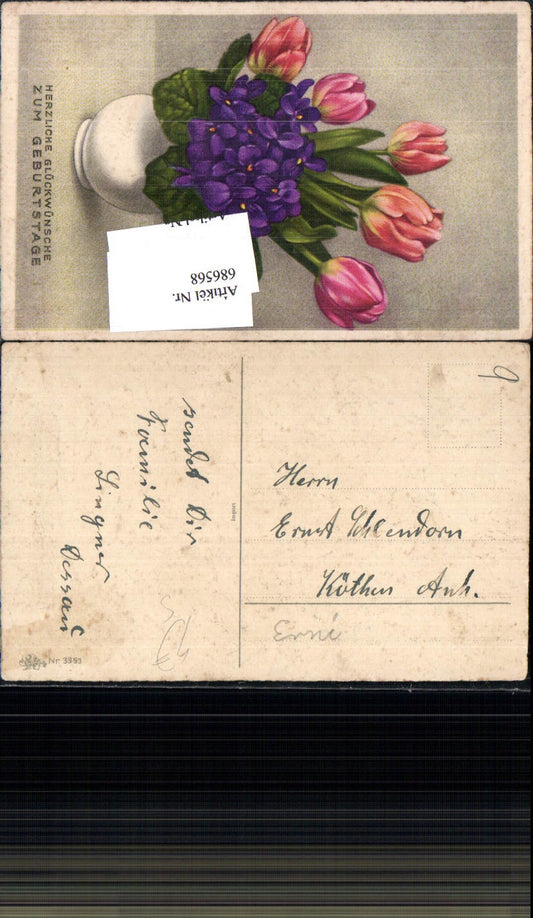 HERZLICHE GLÜCKWÜNSCHE
ZUM GEBURTSTAGE
Artikel Nr.
Artikel Nr.
686568
9
sendet Dir
Familie
Lingner
Dessau
Herrn
Ernst Schlendorn
Köthen Anh.
Erni
Nr. 3393